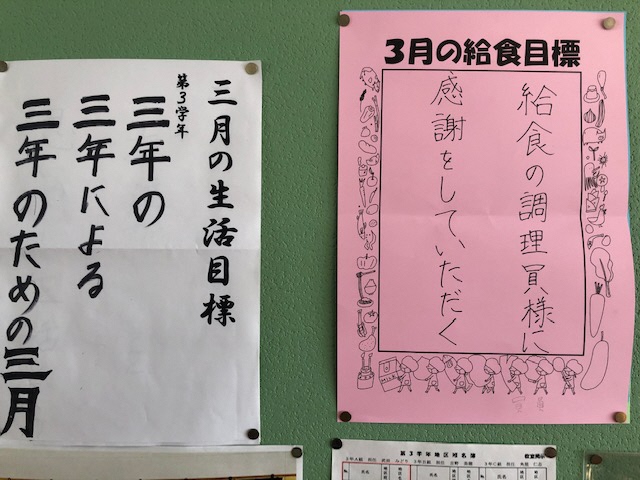 三月の生活目標
第3学年
三年の
三年による
三年のための三月
3月の給食目標
給食の調理員様に
感謝をしていただく
第3学年地区班名簿
教室掲示